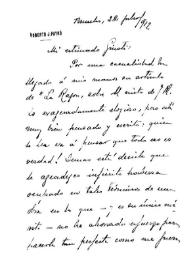 ROBERTO J. PAYRÓ
Bruselas, 28 julio/912
Mi estimado Giusti:
Por una casualidad han
llegado á mis manos un artículo
de "La Razón", sobre
exageradamente elogioso, pero está
muy bien pensado y escrito; quien
lo lea va á pensar que todo eso es
verdad! Demás está decirle que
le agradezco infinito haberse
ocupado en tales términos de una
obra en la que — y es mi único mé-
rito — no he ahorrado esfuerzo para
hacerla tan perfecta como me fuera